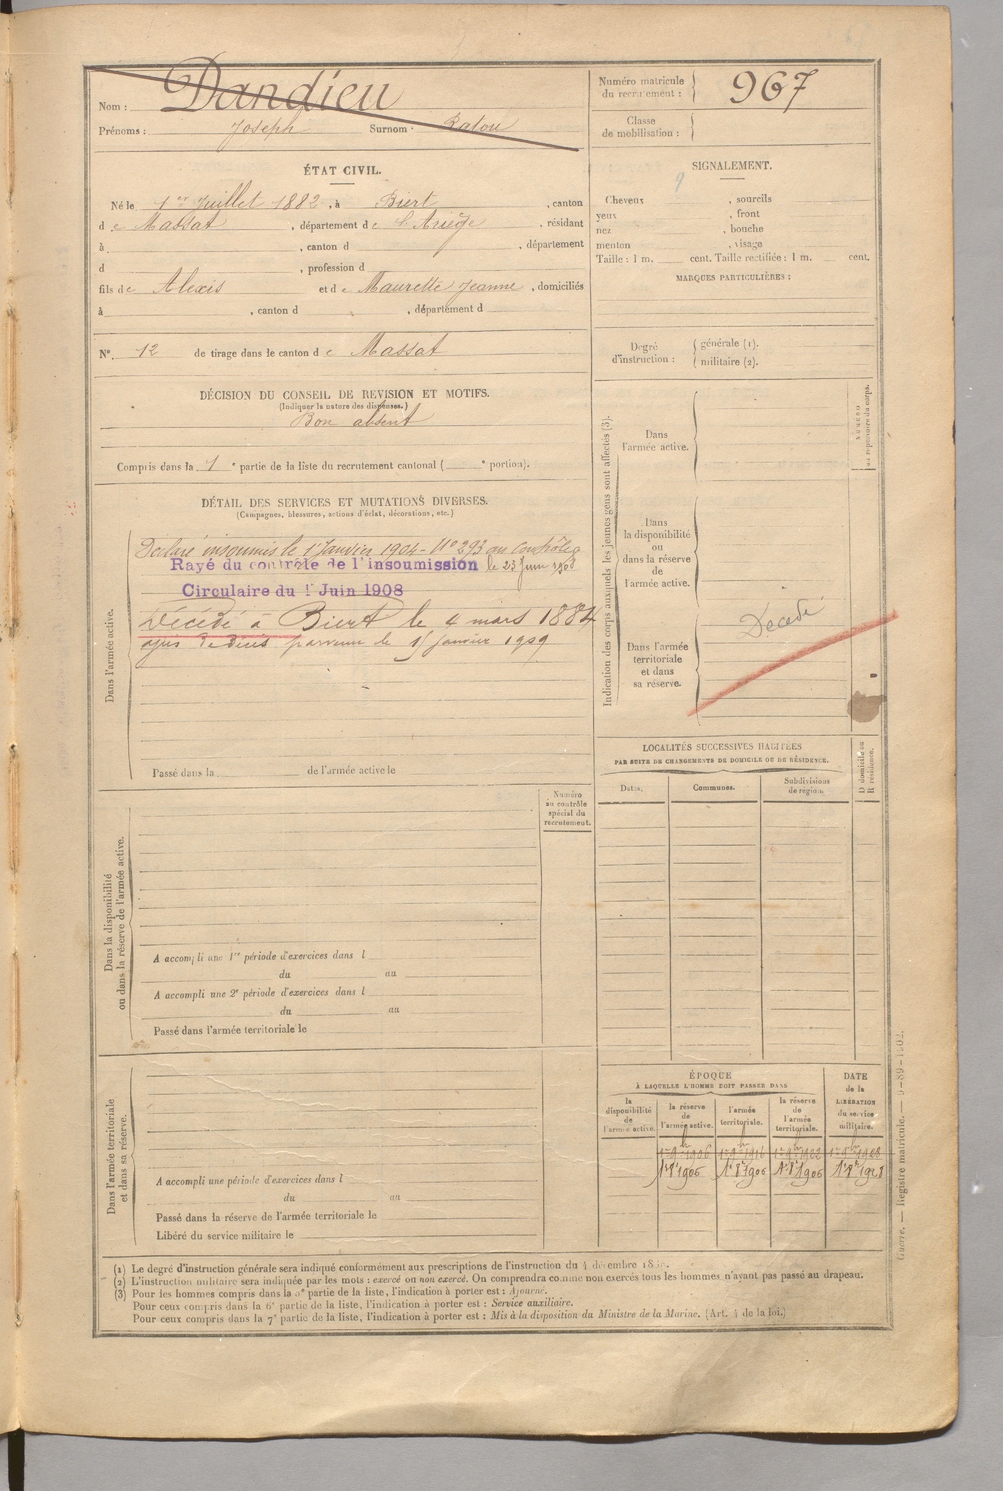 Nom : Dandieu
Prénoms : Joseph Surnom : Ratou
Numéro matricule du recrutement : 967
Classe de mobilisation :
ÉTAT CIVIL.
Né le 1er Juillet 1882, à Biert, canton
de Massat, département de l'Ariège, résidant
à , canton d , département
d , profession d
fils de Alexis et de Maurette Jeanne, domiciliés
à , canton d , département d
N° 12 de tirage dans le canton de Massat
DÉCISION DU CONSEIL DE REVISION ET MOTIFS.
(Indiquer la nature des dispenses.)
Bon absent
Compris dans la 1e partie de la liste du recrutement cantonal ( e portion).
DÉTAIL DES SERVICES ET MUTATIONS DIVERSES.
(Campagnes, blessures, actions d'éclat, décorations, etc.)
Dans l'armée active.
Déclaré insoumis le 1er Janvier 1904 - N° 293 au contrôle
Rayé du contrôle de l'insoumission le 23 Juin 1908
Circulaire du 1 Juin 1908
Décédé à Biert le 4 mars 1884
avis de décès parvenu le 15 Janvier 1909
Passé dans la de l'armée active le
Dans la disponibilité
ou dans la réserve de l'armée active.
Numéro
au contrôle
spécial du
recrutement.
A accompli une 1re période d'exercices dans l
du au
A accompli une 2e période d'exercices dans l
du au
Passé dans l'armée territoriale le
Dans l'armée territoriale
et dans sa réserve.
A accompli une période d'exercices dans l
du au
Passé dans la réserve de l'armée territoriale le
Libéré du service militaire le
SIGNALEMENT.
9
Cheveux , sourcils
yeux , front
nez , bouche
menton , visage
Taille : 1 m. cent. Taille rectifiée : 1 m. cent.
MARQUES PARTICULIÈRES :
Degré d'instruction :
générale (1).
militaire (2).
Indication des corps auxquels les jeunes gens sont affectés (3).
NUMÉRO
au répertoire du corps.
Dans
l'armée active.
Dans
la disponibilité
ou
dans la réserve
de
l'armée active.
Dans l'armée
territoriale
et dans
sa réserve.
Décédé
LOCALITÉS SUCCESSIVES HABITÉES
PAR SUITE DE CHANGEMENTS DE DOMICILE OU DE RÉSIDENCE.
D domicile ou
R résidence.
Dates. Communes. Subdivisions de région.
ÉPOQUE
À LAQUELLE L'HOMME DOIT PASSER DANS
DATE
de la
LIBÉRATION
du service
militaire.
la disponibilité de l'armée active.
la réserve de l'armée active.
l'armée territoriale.
la réserve de l'armée territoriale.
Guerre. — Registre matricule.
(1) Le degré d'instruction générale sera indiqué conformément aux prescriptions de l'instruction du 4 décembre
(2) L'instruction militaire sera indiquée par les mots : exercé ou non exercé. On comprendra comme non exercés tous les hommes n'ayant pas passé au drapeau.
(3) Pour les hommes compris dans la 5e partie de la liste, l'indication à porter est : Ajourné.
Pour ceux compris dans la 6e partie de la liste, l'indication à porter est : Service auxiliaire.
Pour ceux compris dans la 7e partie de la liste, l'indication à porter est : Mis à la disposition du Ministre de la Marine. (Art. 4 de la loi.)